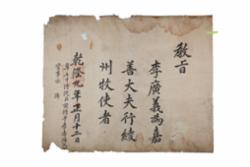 敎旨
李廣義爲嘉
善大夫行綾
州牧使者
乾隆九年正月十二日